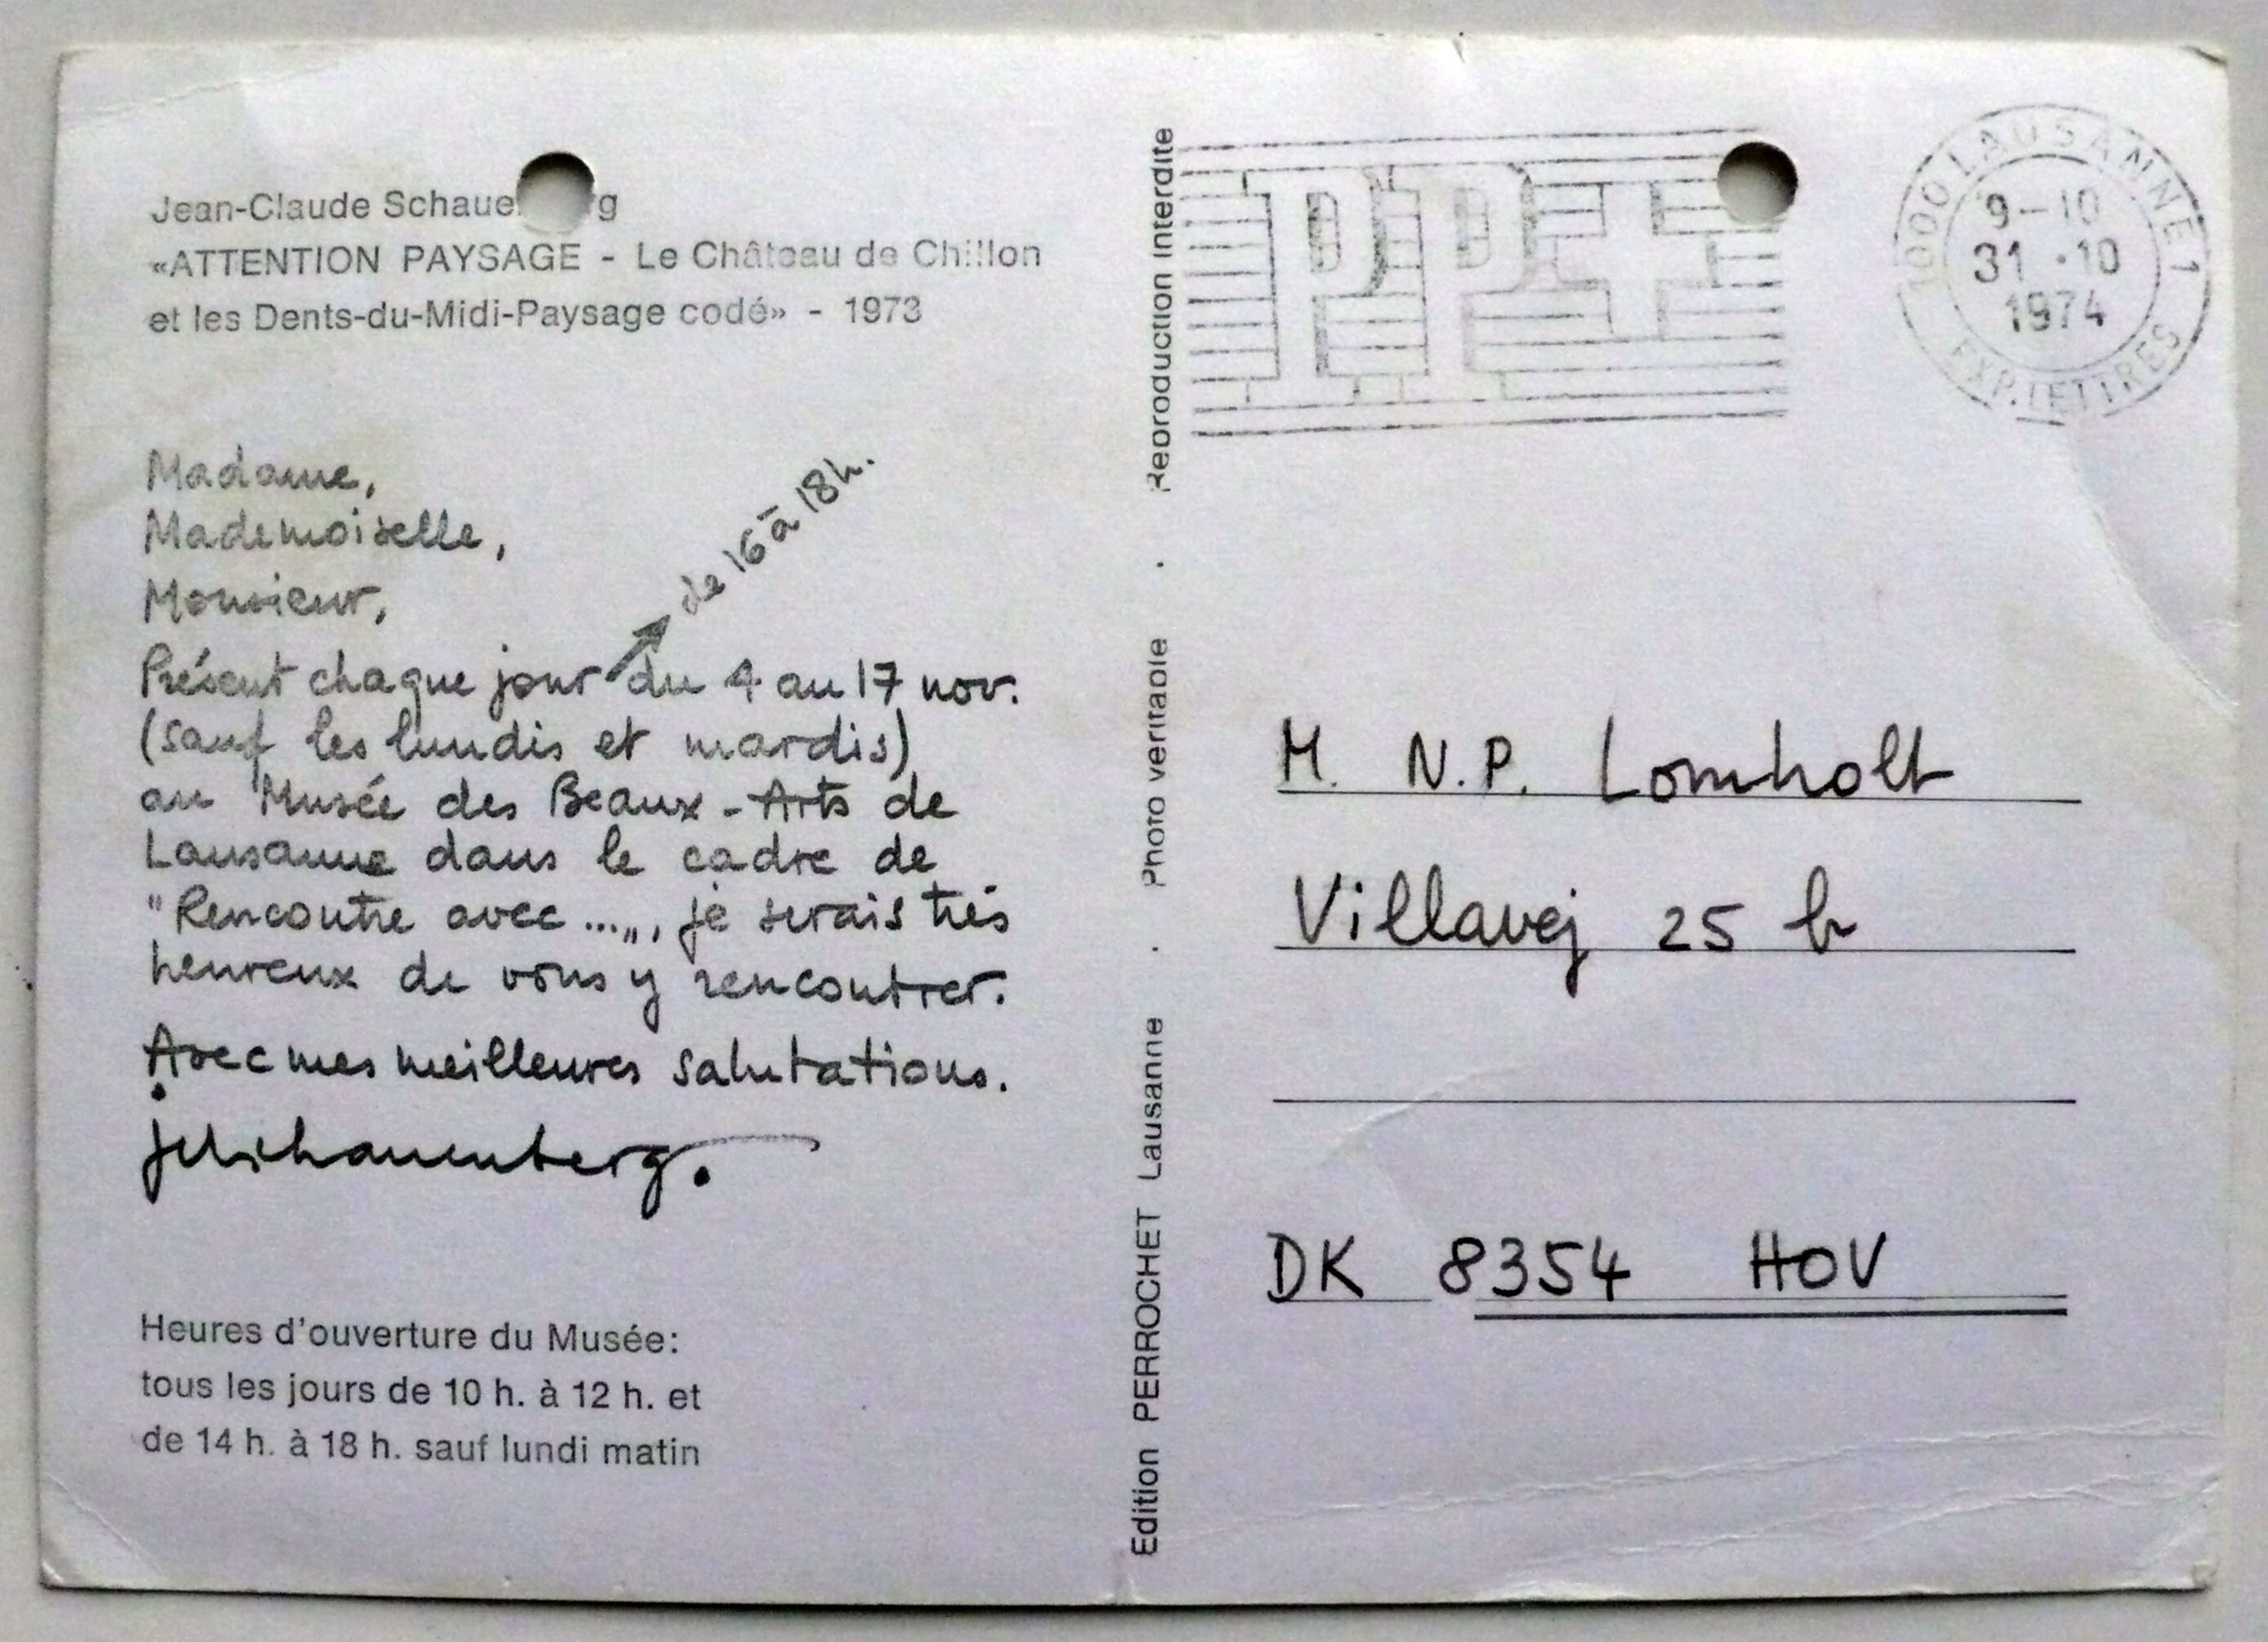 Jean-Claude Schaue rg
«ATTENTION PAYSAGE - Le Château de Chillon
et les Dents-du-Midi-Paysage codé» - 1973
Madame,
Mademoiselle,
Monsieur,
de 16 à 18h.
Présent chaque jour du 4 au 17 nov.
(sauf les lundis et mardis)
au Musée des Beaux-Arts de
Lausanne dans le cadre de
"Rencontre avec ...„, je serais très
heureux de vous y rencontrer.
Avec mes meilleures salutations.
jclschauenberg.
Heures d'ouverture du Musée:
tous les jours de 10 h. à 12 h. et
de 14 h. à 18 h. sauf lundi matin
Edition PERROCHET Lausanne . Photo véritable . Reproduction interdite
PP
1000 LAUSANNE 1
9-10
31.10
1974
EXP. LETTRES
M. N.P. Lomholt
Villavej 25 b
DK 8354 HOV